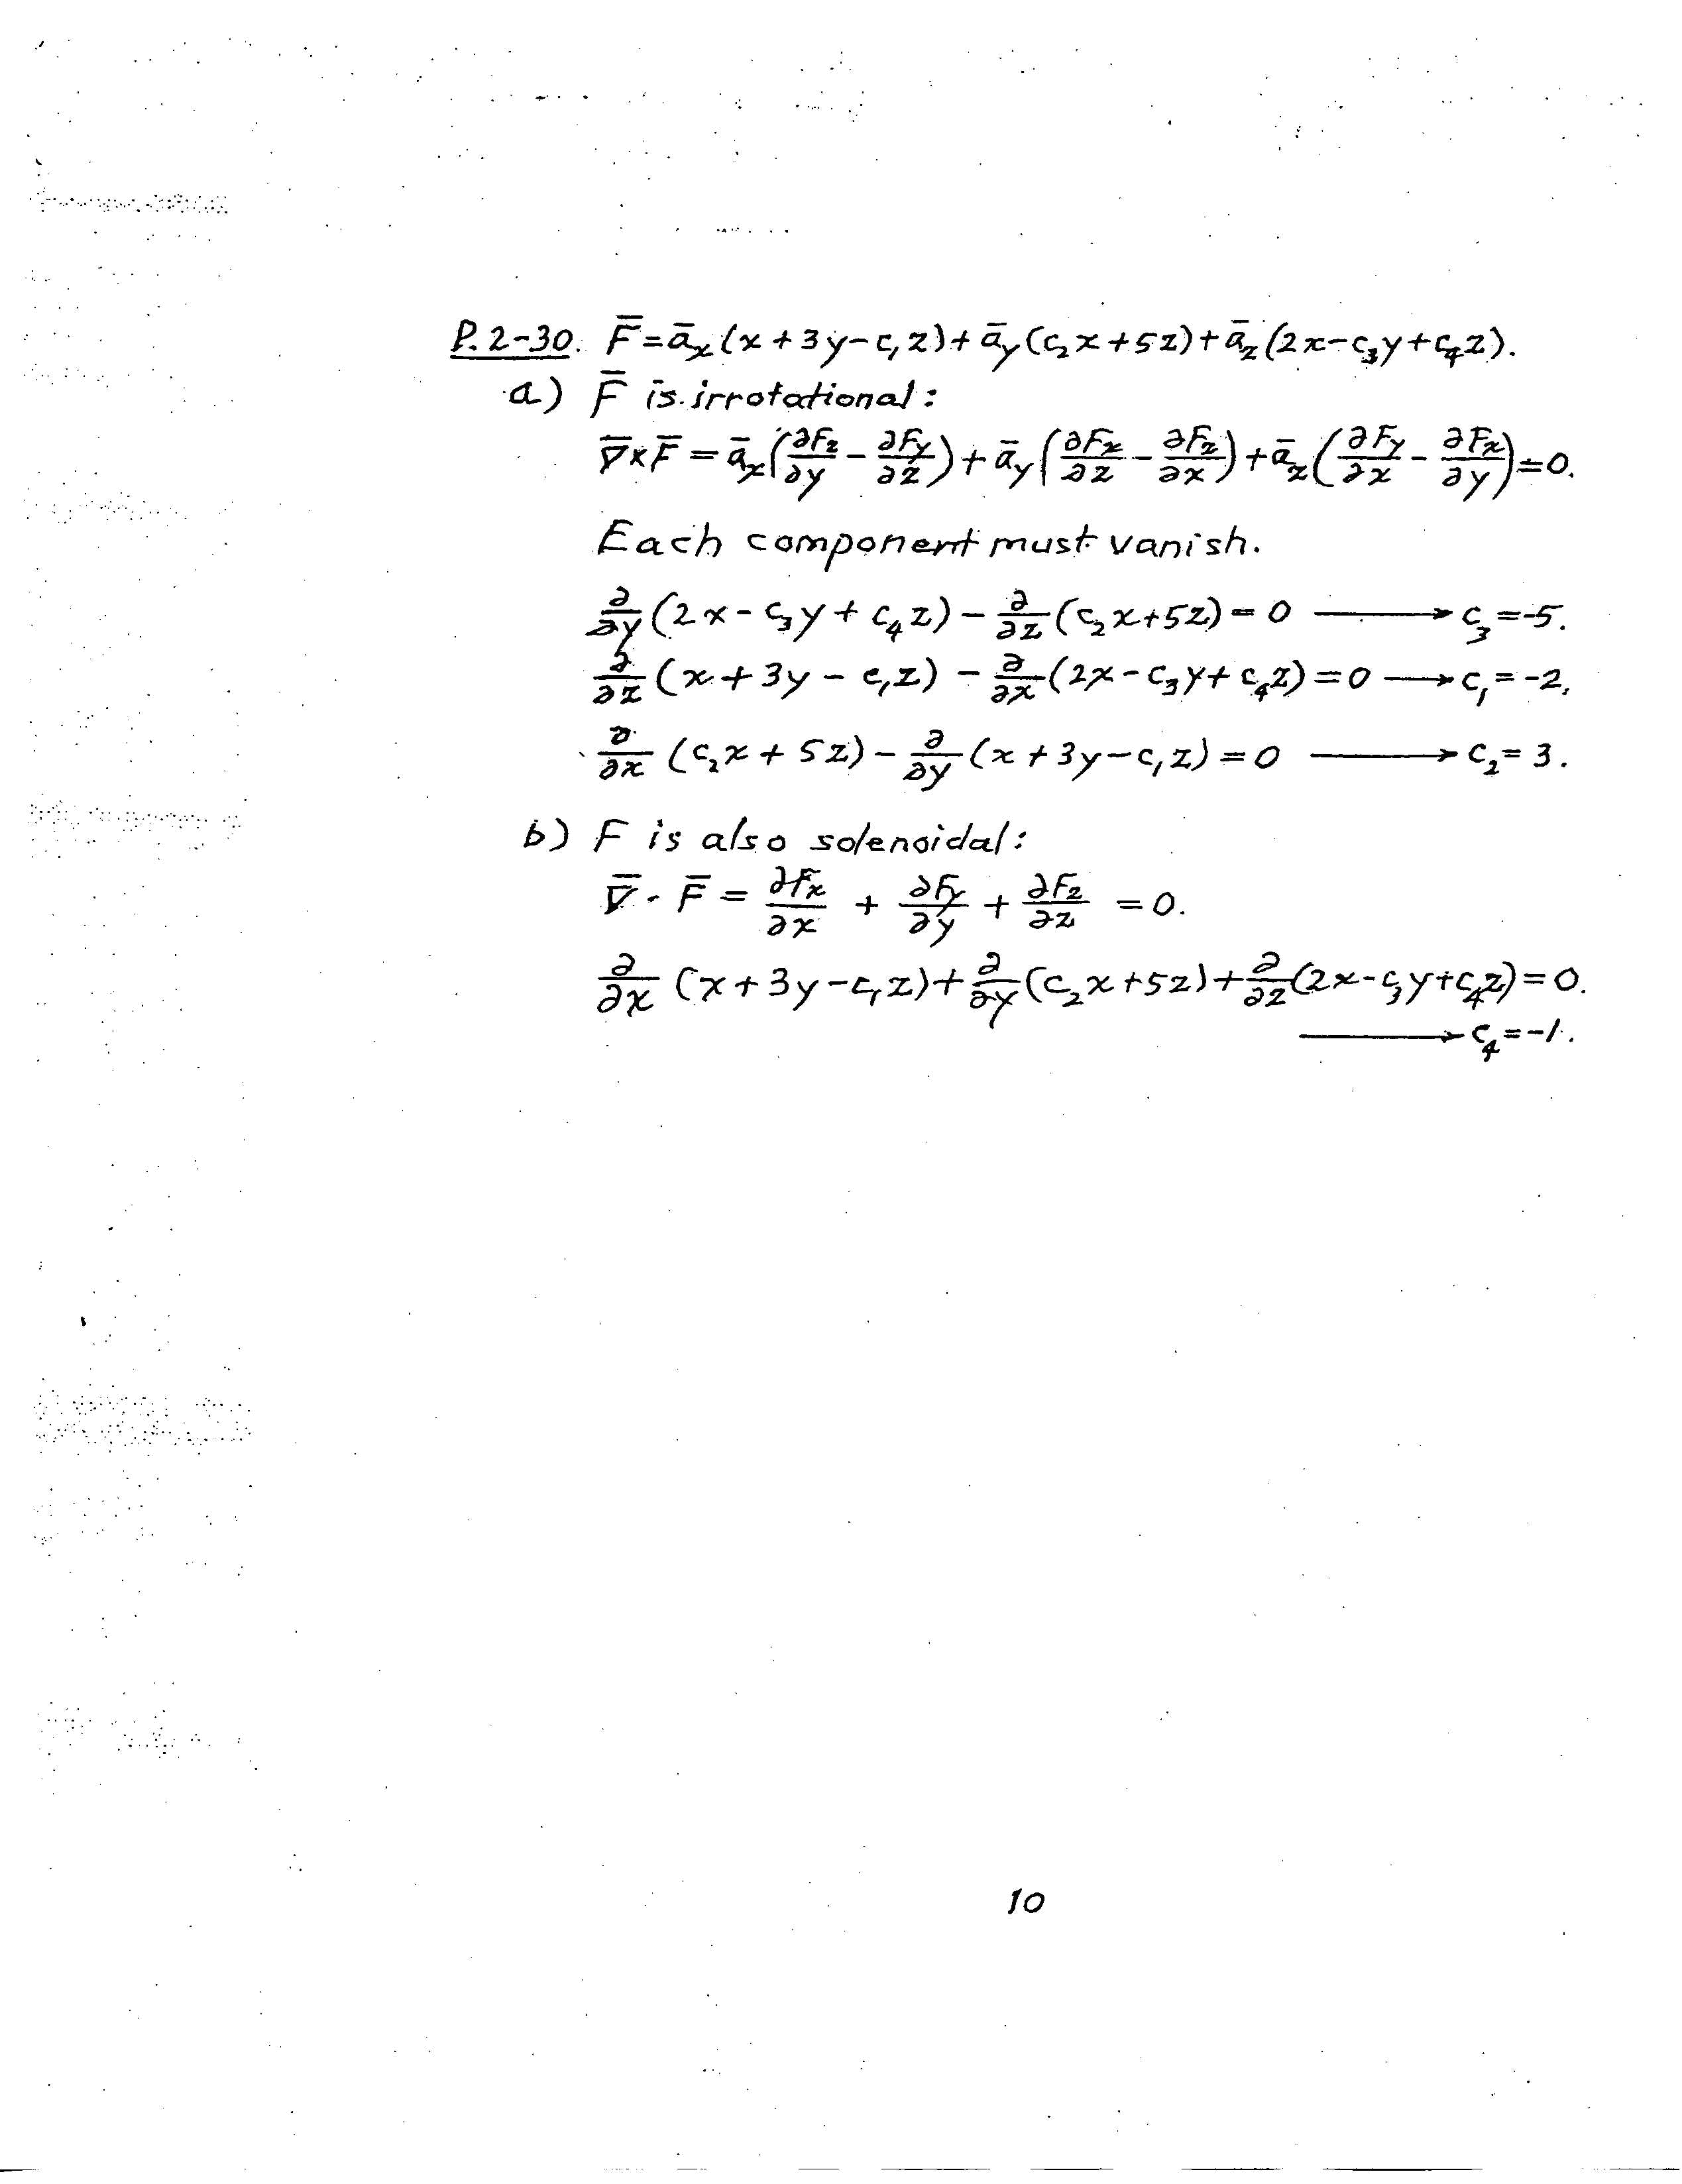 P. 2-30. F̄ = āₓ(x + 3y − c₁z) + ā_y(c₂x + 5z) + ā_z(2x − c₃y + c₄z).
a) F̄ is irrotational:
∇̄×F̄ = āₓ(∂F_z/∂y − ∂F_y/∂z) + ā_y(∂Fₓ/∂z − ∂F_z/∂x) + ā_z(∂F_y/∂x − ∂Fₓ/∂y) = 0.
Each component must vanish.
∂/∂y (2x − c₃y + c₄z) − ∂/∂z (c₂x + 5z) = 0 ⟶ c₃ = −5.
∂/∂z (x + 3y − c₁z) − ∂/∂x (2x − c₃y + c₄z) = 0 ⟶ c₁ = −2.
∂/∂x (c₂x + 5z) − ∂/∂y (x + 3y − c₁z) = 0 ⟶ c₂ = 3.
b) F is also solenoidal:
∇̄ · F̄ = ∂Fₓ/∂x + ∂F_y/∂y + ∂F_z/∂z = 0.
∂/∂x (x + 3y − c₁z) + ∂/∂y (c₂x + 5z) + ∂/∂z (2x − c₃y + c₄z) = 0.
⟶ c₄ = −1.
10